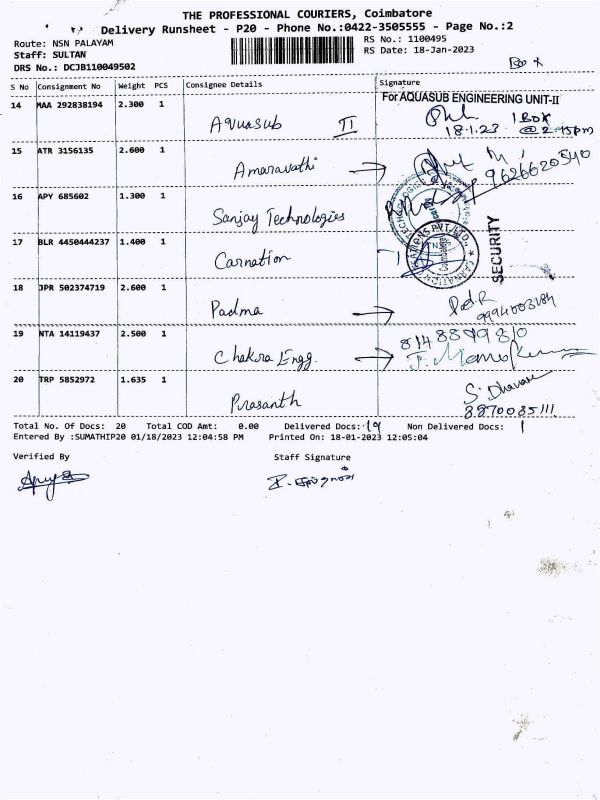 THE PROFESSIONAL COURIERS, Coimbatore
Delivery Runsheet - P20 - Phone No.:0422-3505555 - Page No.:2
Route: NSN PALAYAM
RS No.: 1100495
Staff: SULTAN
RS Date: 18-Jan-2023
DRS No.: DCJB110049502
Box
S No Consignment No Weight PCS Consignee Details Signature
For AQUASUB ENGINEERING UNIT-II
14 MAA 292838194 2.300 1 Aquasub II
1 Box
18.1.23 @ 2.45pm
15 ATR 3156135 2.600 1 Amaravathi
9626620540
16 APY 685602 1.300 1 Sanjay Technologies
17 BLR 4450444237 1.400 1 Carnation
SECURITY
18 JPR 502374719 2.600 1 Padma
19 NTA 14119437 2.500 1 Chakra Engg.
20 TRP 5852972 1.635 1 Prasanth
S. Dhavan
Total No. Of Docs: 20 Total COD Amt: 0.00 Delivered Docs: 19 Non Delivered Docs: 1
Entered By :SUMATHIP20 01/18/2023 12:04:58 PM Printed On: 18-01-2023 12:05:04
Verified By Staff Signature